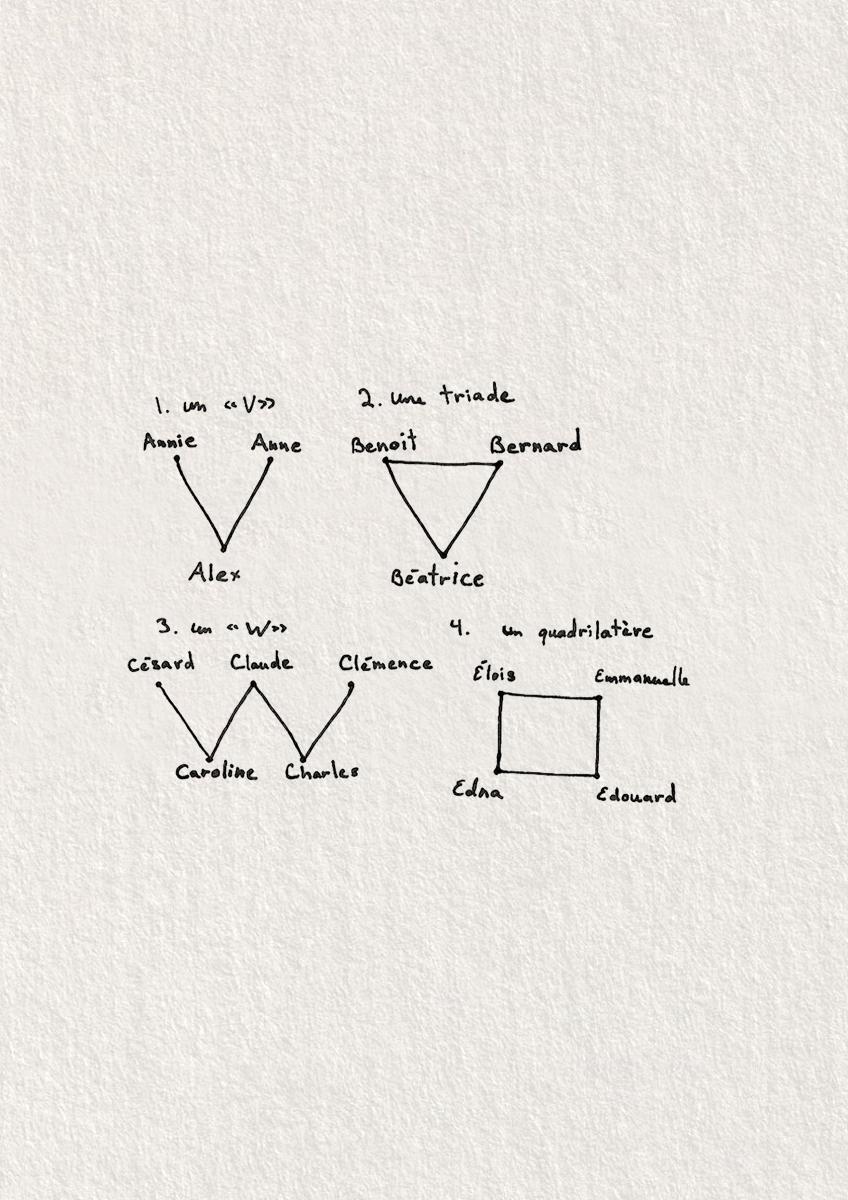 1. un «V»
Annie Anne
Alex
2. une triade
Benoit Bernard
Béatrice
3. un «W»
Césard Claude Clémence
Caroline Charles
4. un quadrilatère
Élois Emmanuelle
Edna Edouard